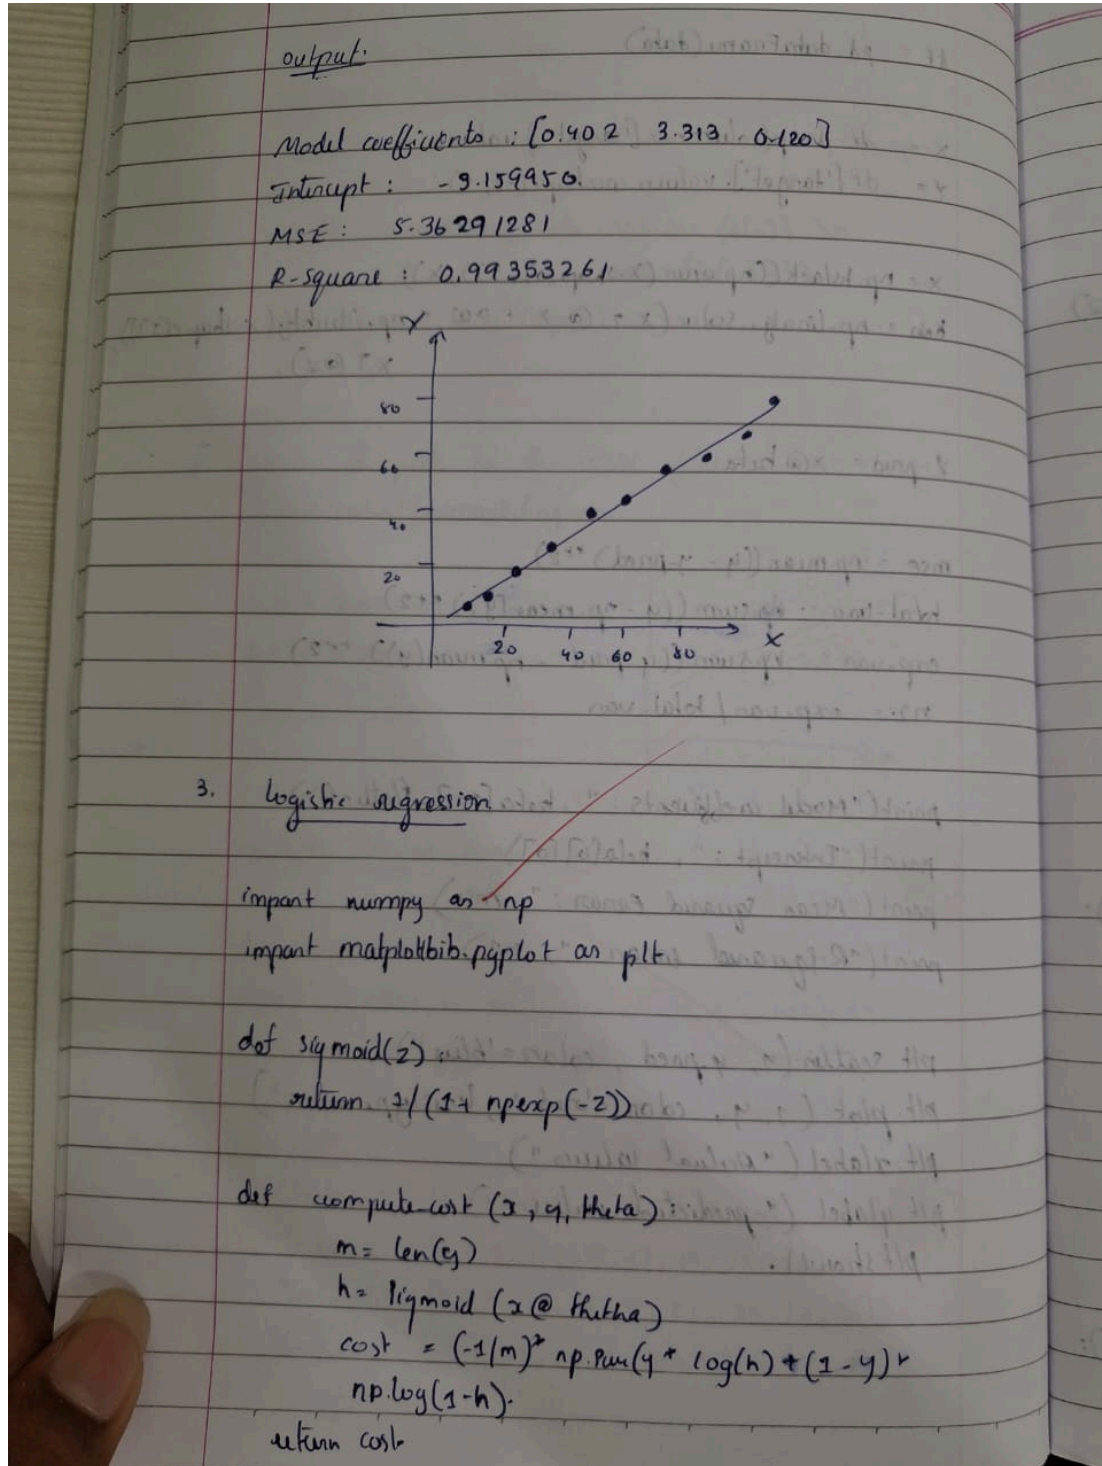 output:
Model coefficients : [0.402 3.313 0.120]
Intercept : -9.159950.
MSE : 5.36291281
R-square : 0.99353261
Y
80
60
40
20
20 40 60 80 X
3. Logistic regression
import numpy as np
import matplotlib.pyplot as plt
def sigmoid(z) :
return 1/(1+ np.exp(-z))
def compute-cost (x, y, theta) :
m= len(y)
h= sigmoid (x@ thetha)
cost = (-1/m)* np.sum(y * log(h) + (1-y)*
np.log(1-h).
return cost